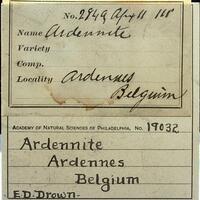 No. 2949
Name Ardennite
Variety
Comp.
Locality Ardennes
Belgium
ACADEMY OF NATURAL SCIENCES OF PHILADELPHIA, No. 19032
Ardennite
Ardennes
Belgium
E.D. Drown